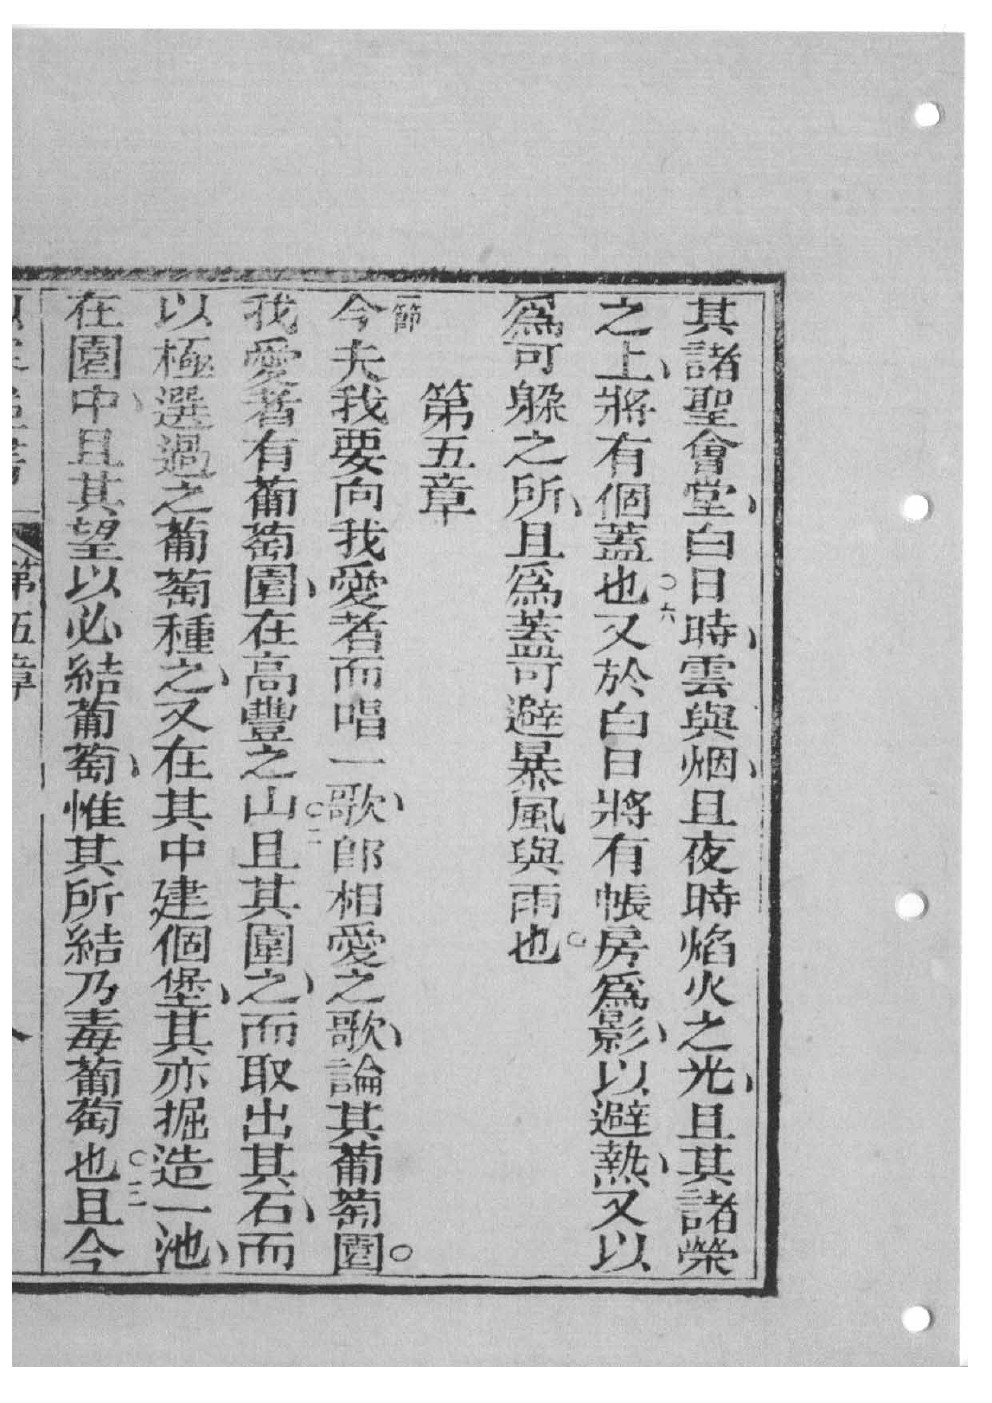 其諸聖會堂、白日時、雲與烟、且夜時焰火之光、且其諸榮
之上、將有個蓋也。六又於白日將有帳房爲影、以避熱、又以
爲可躲之所、且爲蓋可避暴風與雨也。
第五章
一節今夫我要向我愛者而唱一歌、卽相愛之歌、論其葡萄園。
我愛者有葡萄園、在高豐之山。二且其圍之、而取出其石、而
以極選過之葡萄種之、又在其中建個堡、其亦掘造一池、
在園中、且其望以必結葡萄、惟其所結乃毒葡萄也。三且今
第五章
八